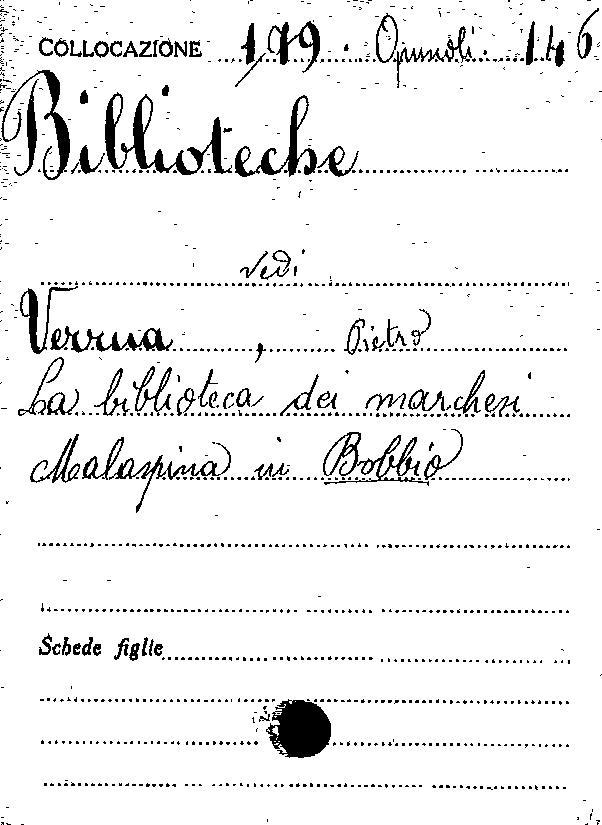 COLLOCAZIONE 1,79. Opuscoli. 146
Biblioteche
vedi
Verrua, Pietro
La biblioteca dei marchesi
Malaspina in Bobbio
Schede figlie